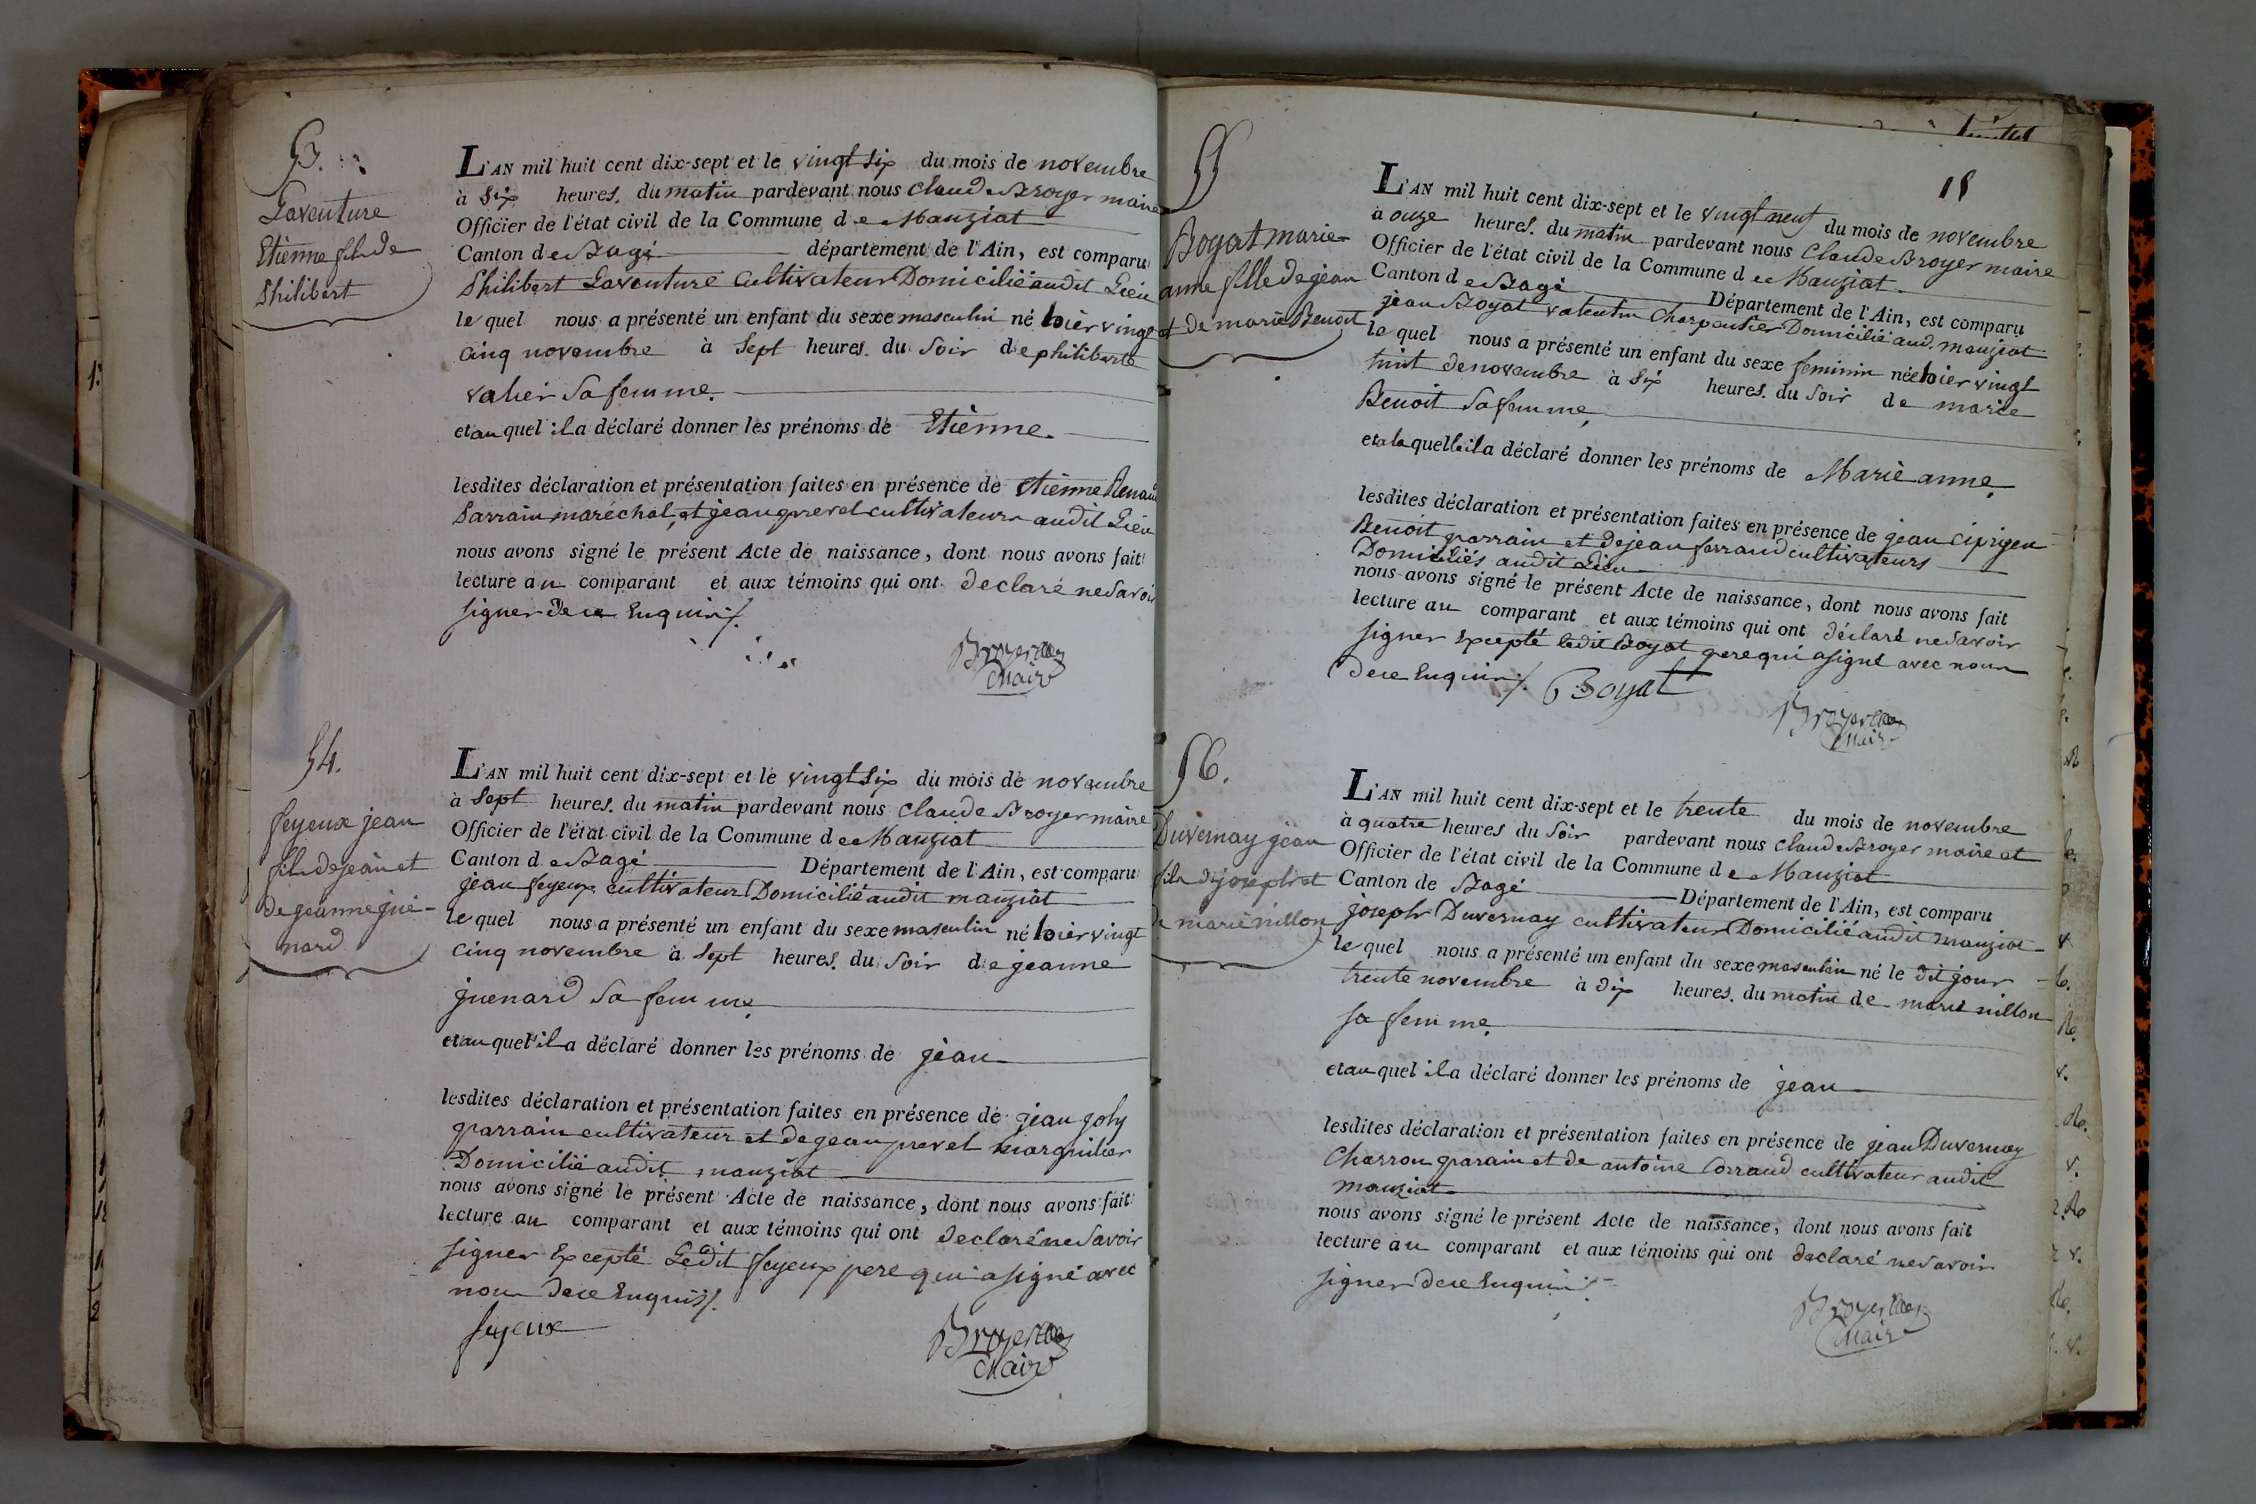 53.
Laventure
Etienne fils de
Philibert
L'AN mil huit cent dix-sept et le vingt six du mois de novembre
à Six heures du matin pardevant nous Claude Broyer maire
Officier de l'état civil de la Commune de Manziat
Canton de Bagé département de l'Ain, est comparu
Philibert Laventure Cultivateur Domicilié audit Lieu
le quel nous a présenté un enfant du sexe masculin né hier vingt
cinq novembre à Sept heures du Soir de philiberte
valier Sa femme.
et au quel il a déclaré donner les prénoms de Etienne.
lesdites déclaration et présentation faites en présence de etienne Renaud
Parrain maréchal, et jean prevel cultivateurs audit Lieu
nous avons signé le présent Acte de naissance, dont nous avons fait
lecture au comparant et aux témoins qui ont declaré ne Savoir
signer De ce Enquis /.
Broyer
Maire
54.
feyeux jean
fils de jean et
de jeanne gue-
nard
L'AN mil huit cent dix-sept et le vingt Six du mois de novembre
à Sept heures du matin pardevant nous Claude Broyer maire
Officier de l'état civil de la Commune de Manziat
Canton de Bagé Département de l'Ain, est comparu
jean feyeux cultivateur Domicilié audit manziat
le quel nous a présenté un enfant du sexe masculin né hier vingt
cinq novembre à Sept heures du Soir de jeanne
guenard Sa femme.
et au quel il a déclaré donner les prénoms de jean
lesdites déclaration et présentation faites en présence de jean joly
parrain cultivateur et de jean prevel marguilier
Domicilié audit manziat
nous avons signé le présent Acte de naissance, dont nous avons fait
lecture au comparant et aux témoins qui ont declaré ne Savoir
signer Excepté Ledit feyeux pere qui a signé avec
nous De ce Enquis /.
feyeux
Broyer
Maire
18
55
Boyat marie
anne fille de jean
et de marie Benoit
L'AN mil huit cent dix-sept et le vingt neuf du mois de novembre
à onze heures du matin pardevant nous Claude Broyer maire
Officier de l'état civil de la Commune de Manziat
Canton de Bagé Département de l'Ain, est comparu
jean Boyat valentin Charpentier Domicilié aud. manziat
le quel nous a présenté un enfant du sexe feminin née hier vingt
huit de novembre à Six heures du Soir de marie
Benoit Sa femme
et a la quelle il a déclaré donner les prénoms de Marie anne.
lesdites déclaration et présentation faites en présence de jean Ciprien
Benoit parrain et de jean ferrand cultivateurs
Domiciliés audit Lieu
nous avons signé le présent Acte de naissance, dont nous avons fait
lecture au comparant et aux témoins qui ont déclaré ne Savoir
signer Excepté ledit Boyat pere qui a signé avec nous
De ce Enquis /. Boyat
Broyer
Maire
56.
Duvernay jean
fils de joseph et
de marie nillon
L'AN mil huit cent dix-sept et le trente du mois de novembre
à quatre heures du Soir pardevant nous Claude Broyer maire et
Officier de l'état civil de la Commune de Manziat
Canton de Bagé Département de l'Ain, est comparu
joseph Duvernay cultivateur Domicilié audit manziat
le quel nous a présenté un enfant du sexe masculin né le dit jour
trente novembre à dix heures du matin de marie nillon
sa femme.
et au quel il a déclaré donner les prénoms de jean
lesdites déclaration et présentation faites en présence de jean Duvernay
Charron parain et de antoine Corrand cultivateur audit
manziat
nous avons signé le présent Acte de naissance, dont nous avons fait
lecture au comparant et aux témoins qui ont declaré ne Savoir
signer De ce Enquis /.
Broyer
Maire